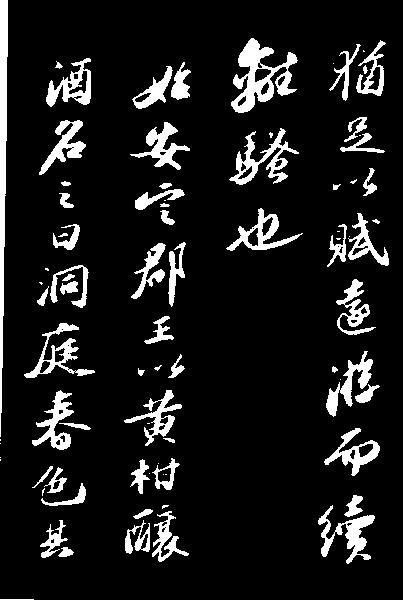 猶足以賦遠游而續
離騷也
始安定郡王以黃柑釀
酒名之曰洞庭春色其